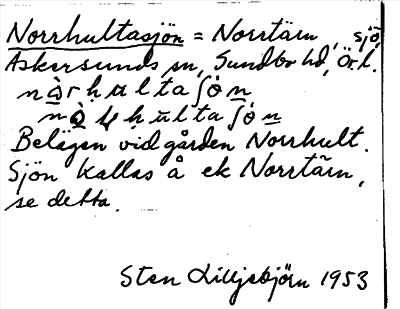 Norrhultasjön = Norrtärn, sjö,
Askersunds sn, Sundbo hd, Ör. l.
Belägen vid gården Norrhult.
Sjön kallas å ek Norrtärn,
se detta.
Sten Lilljebjörn 1953